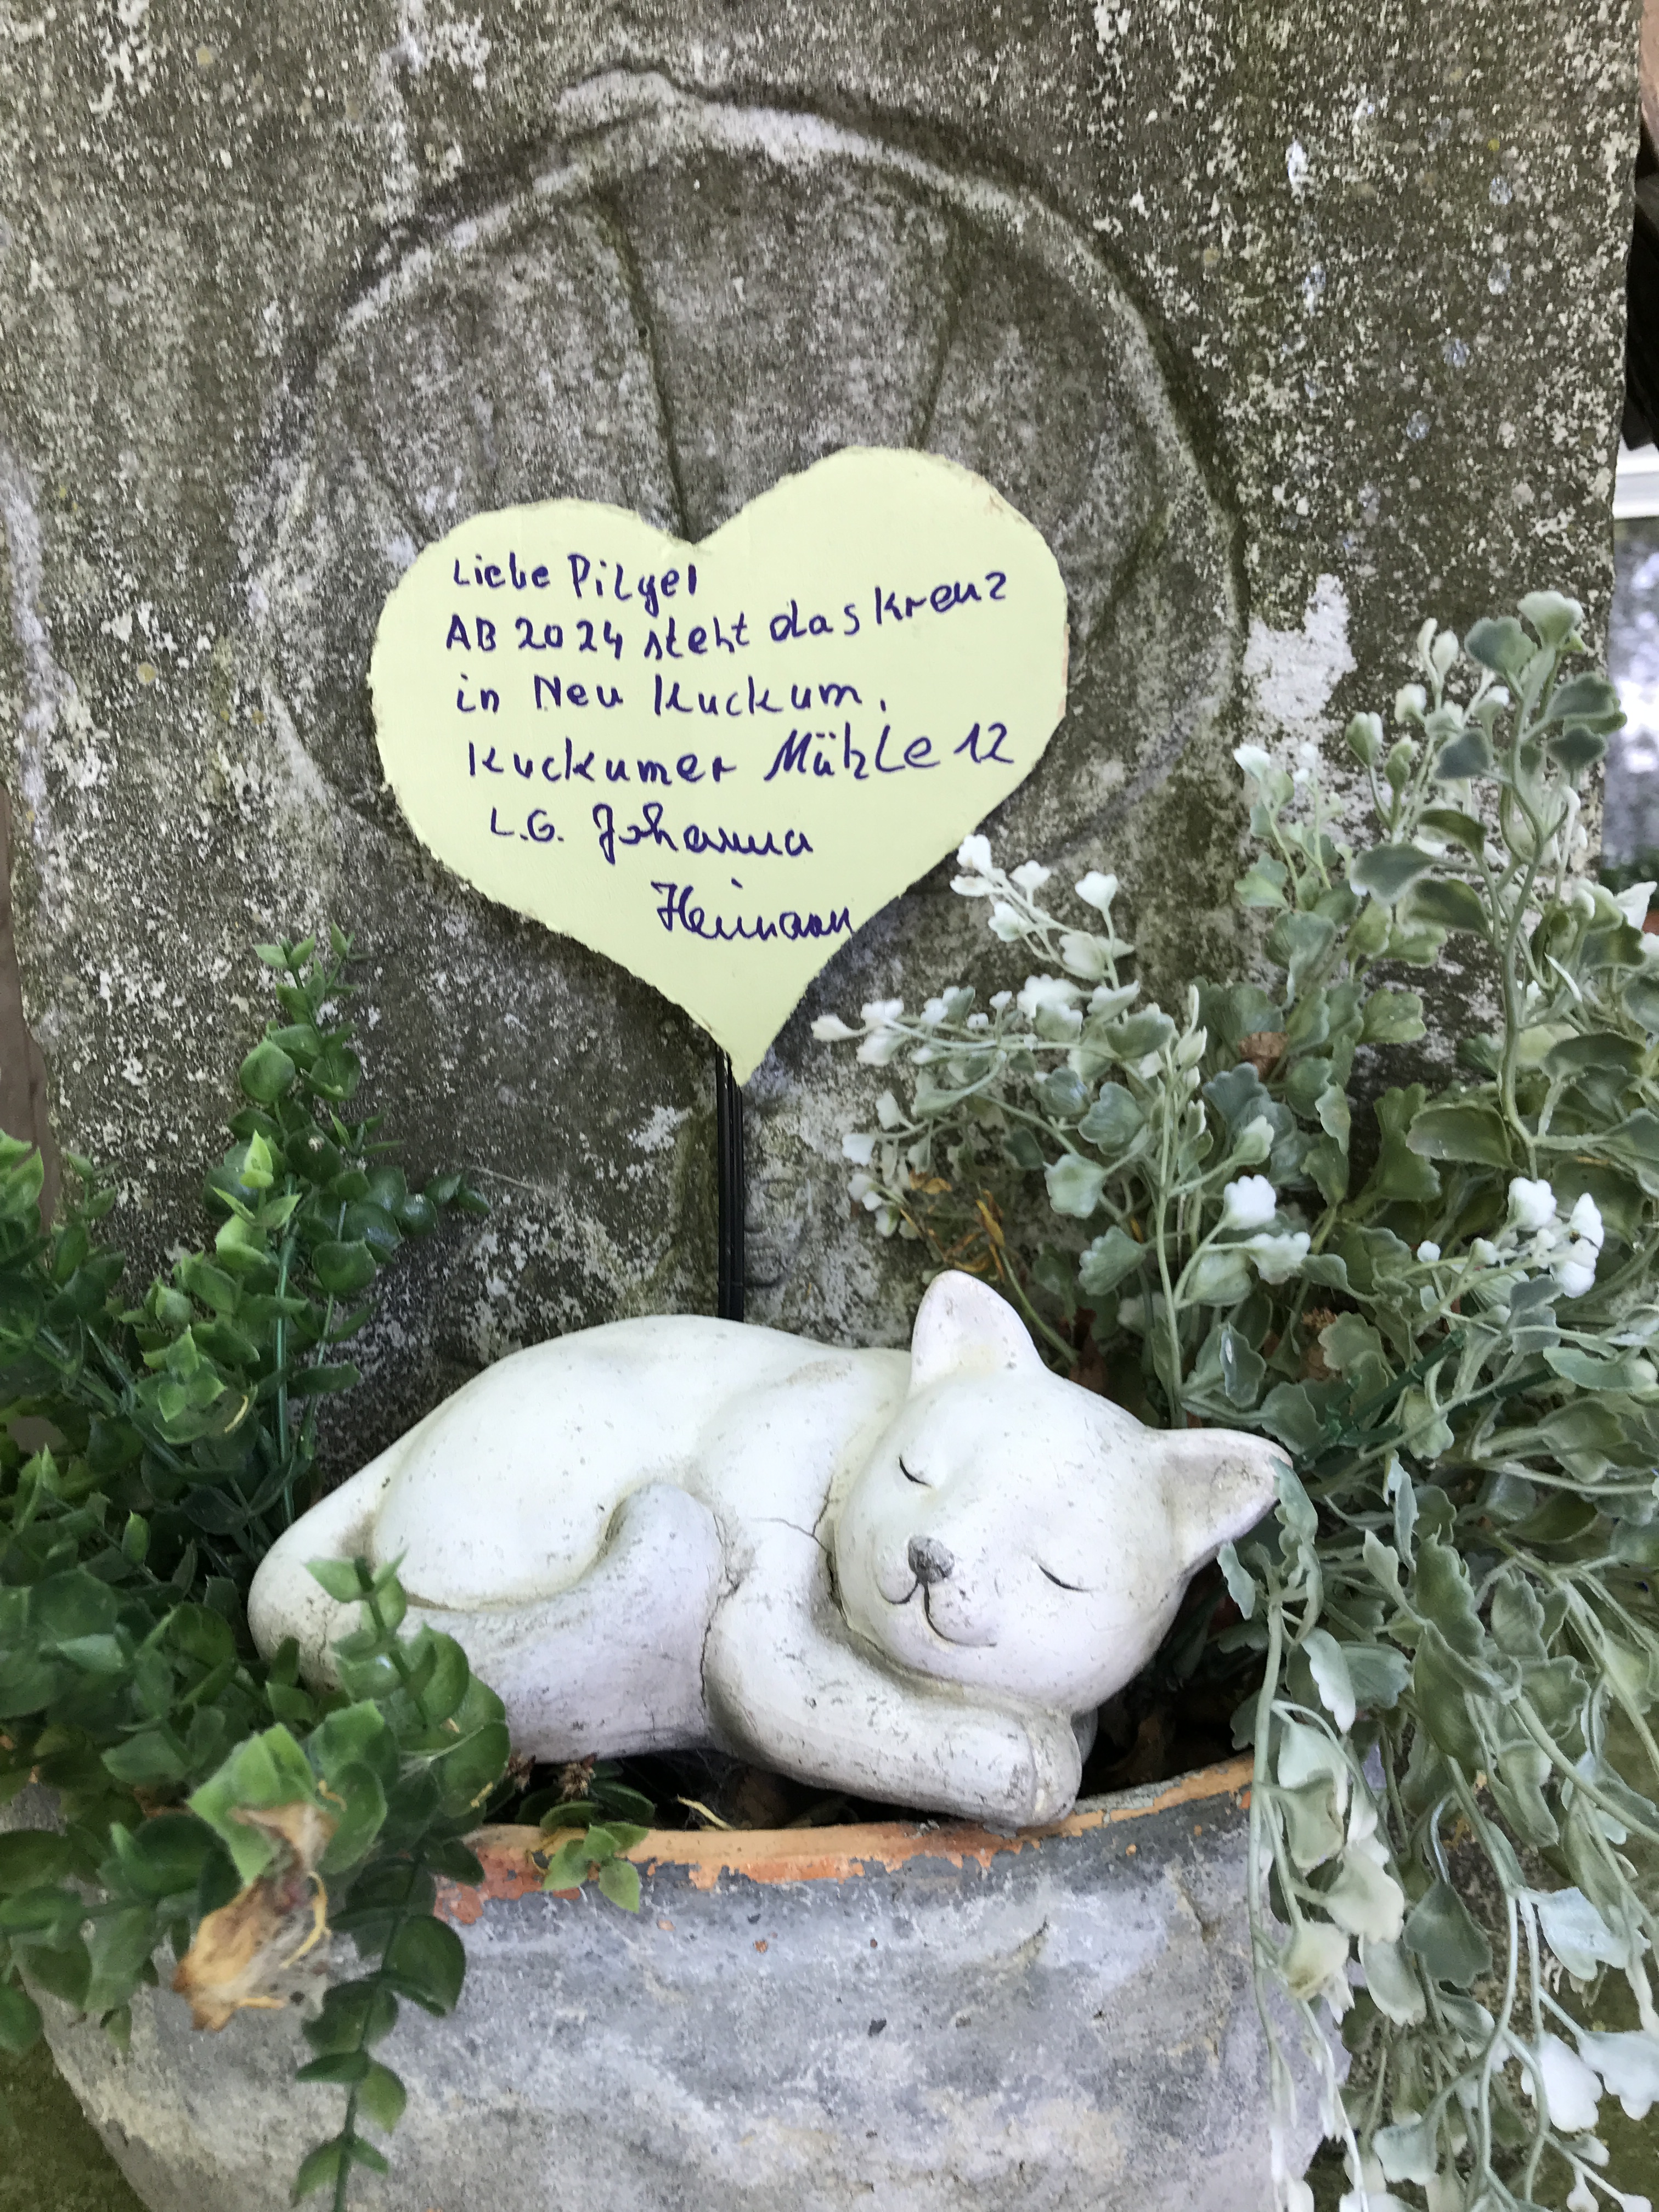 Liebe Pilger
AB 2024 steht das Kreuz
in Neu Kuckum.
Kuckumer Mühle 12
L.G. Johanna